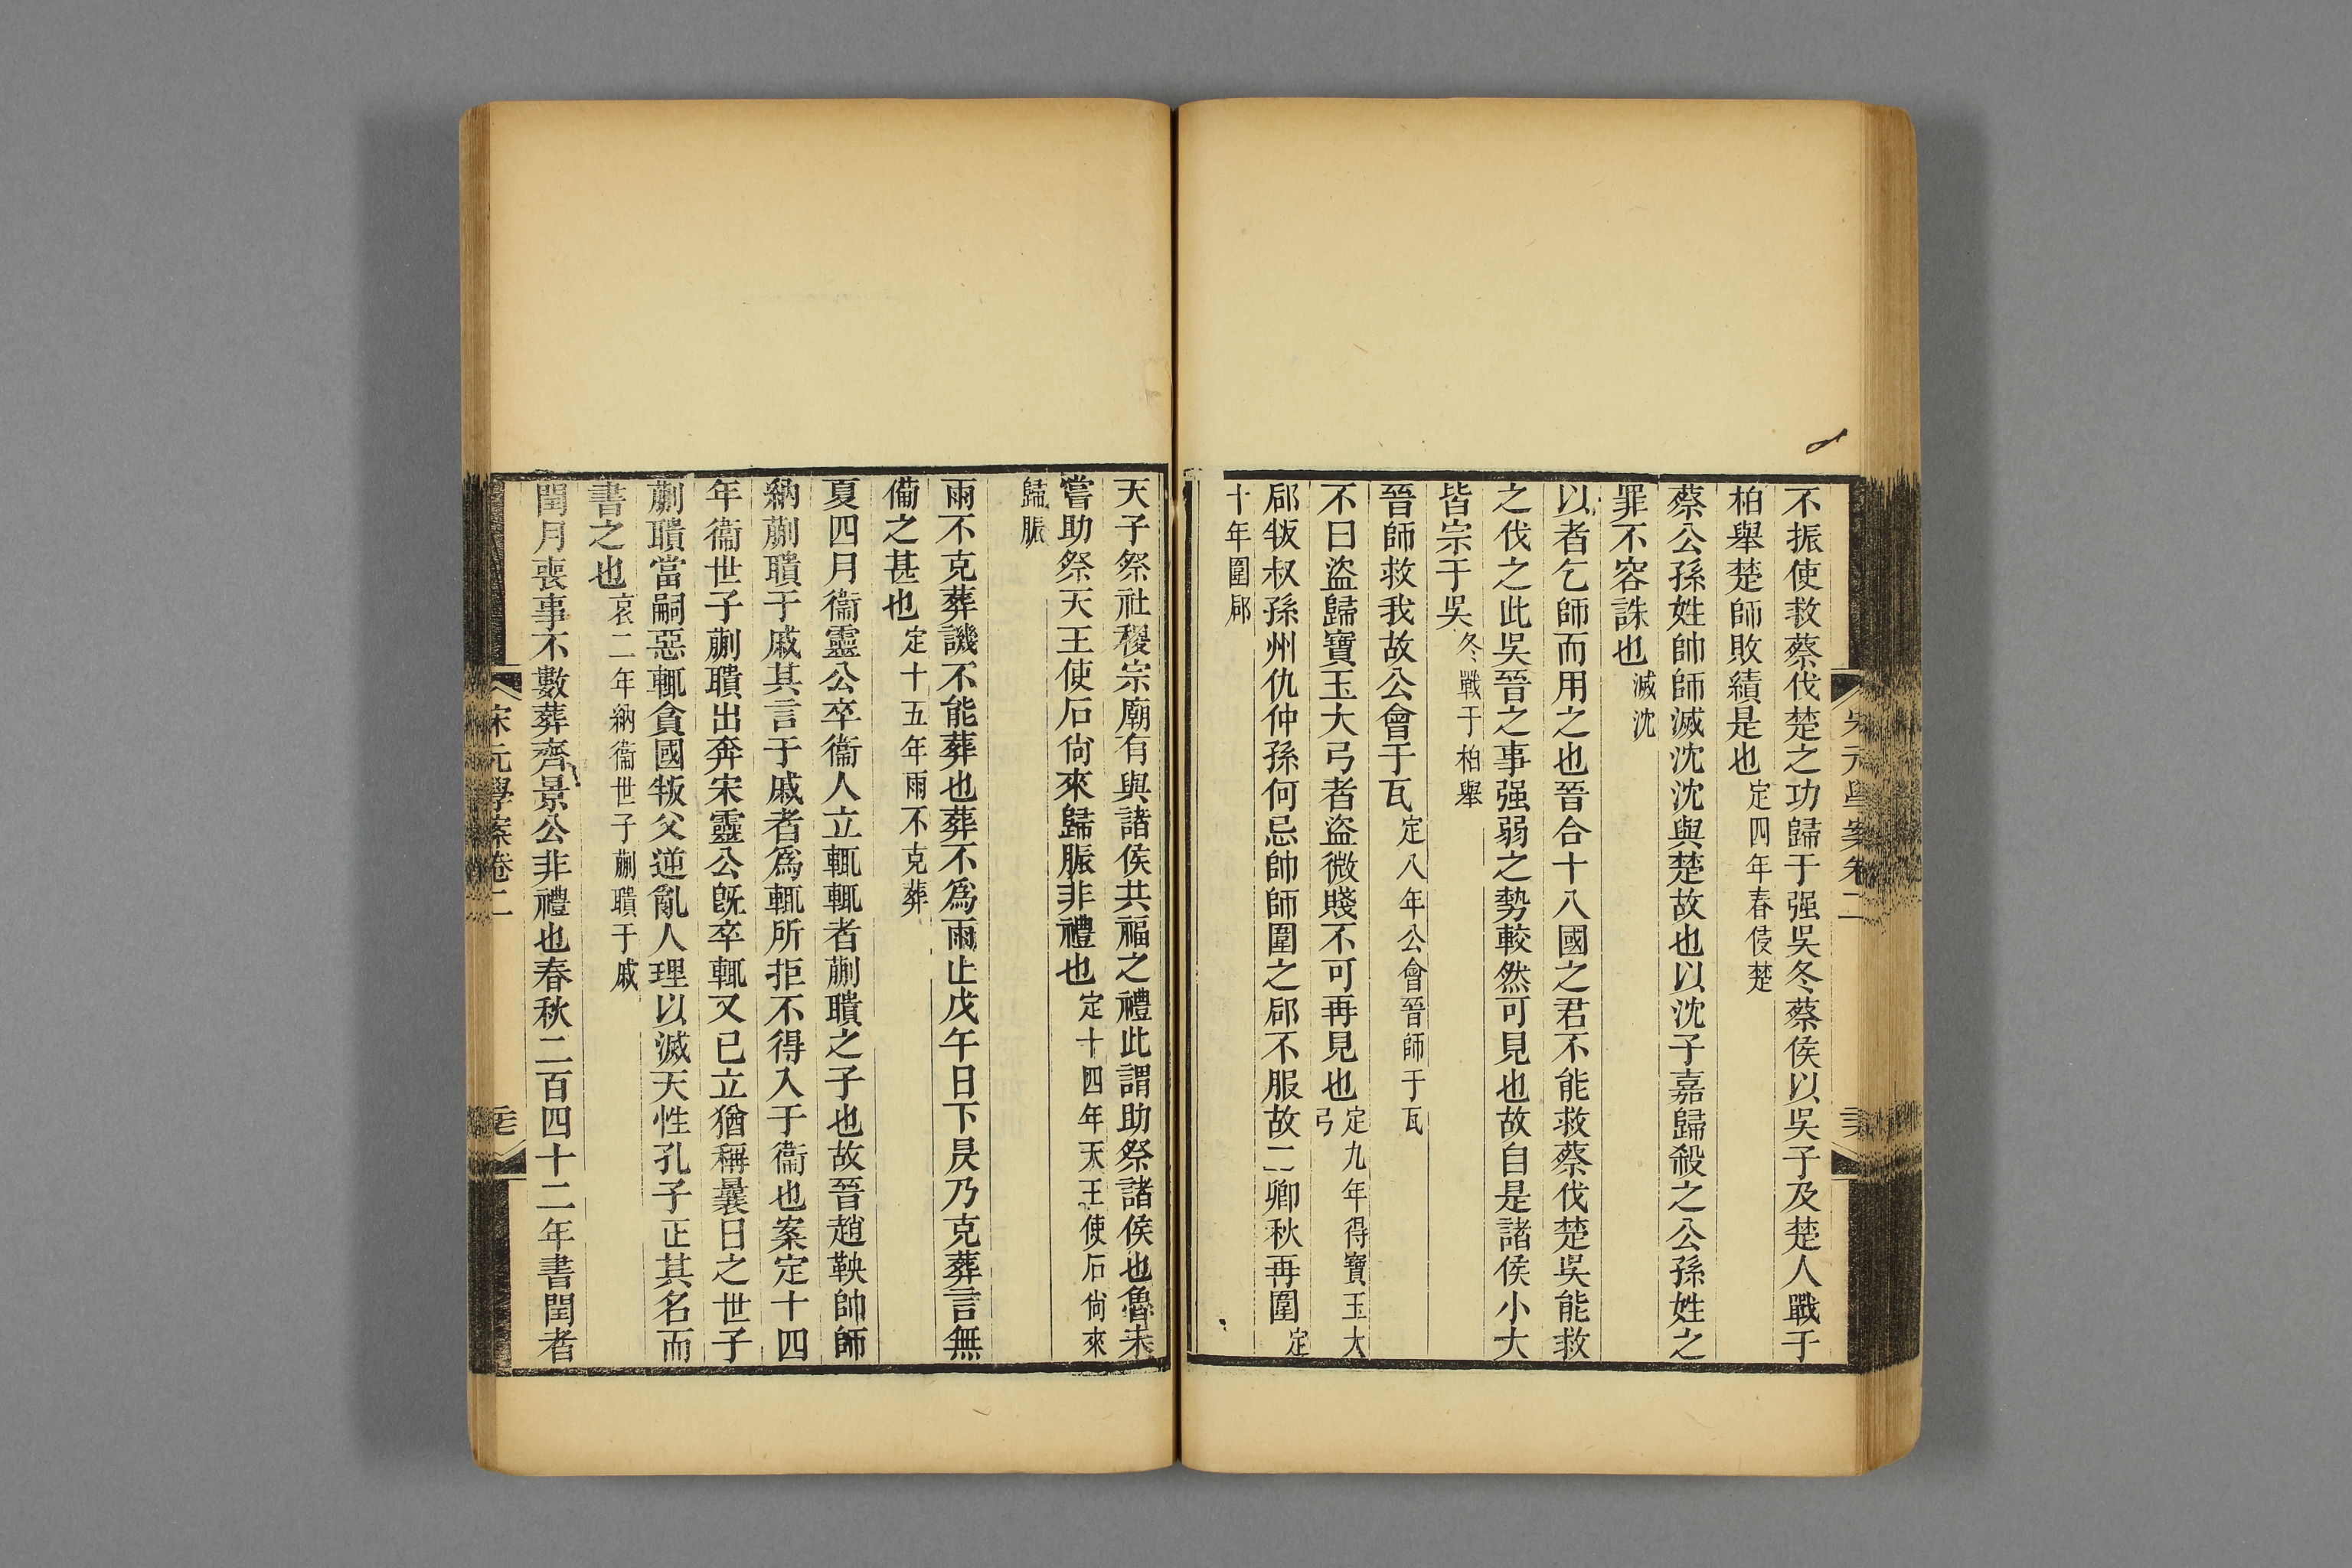 不振使救蔡伐楚之功歸于强吳冬蔡侯以吳子及楚人戰于
柏舉楚師敗績是也定四年春侵楚
蔡公孫姓帥師滅沈沈與楚故也以沈子嘉歸殺之公孫姓之
罪不容誅也滅沈
以者乞師而用之也晉合十八國之君不能救蔡伐楚吳能救
之伐之此吳晉之事强弱之勢較然可見也故自是諸侯小大
皆宗于吳冬戰于柏舉
晉師救我故公會于瓦定八年公會晉師于瓦
不曰盜歸寶玉大弓者盜微賤不可再見也定九年得寶玉大弓
郈叛叔孫州仇仲孫何忌帥師圍之郈不服故二卿秋再圍定
十年圍郈
天子祭社稷宗廟有與諸侯共福之禮此謂助祭諸侯也魯未
嘗助祭天王使石尙來歸脤非禮也定十四年天王使石尙來
歸脤
雨不克葬譏不能葬也葬不爲雨止戊午日下昃乃克葬言無
備之甚也定十五年雨不克葬
夏四月衞靈公卒衞人立輒輒者蒯聵之子也故晉趙鞅帥師
納蒯聵于戚其言于戚者爲輒所拒不得入于衞也案定十四
年衞世子蒯聵出奔宋靈公旣卒輒又已立猶稱曩日之世子
蒯聵當嗣惡輒貪國叛父逆亂人理以滅天性孔子正其名而
書之也哀二年納衞世子蒯聵于戚
閏月喪事不數葬齊景公非禮也春秋二百四十二年書閏者
宋元學案卷二